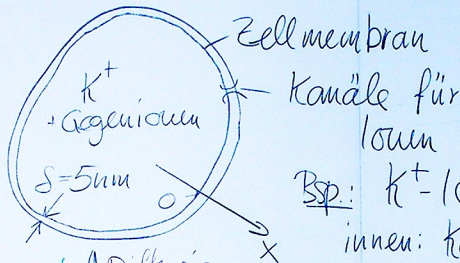 Zellmembran
K⁺
+ Gegenionen
Kanäle für
Ionen
δ=5nm
Bsp.: K⁺-
innen:
x